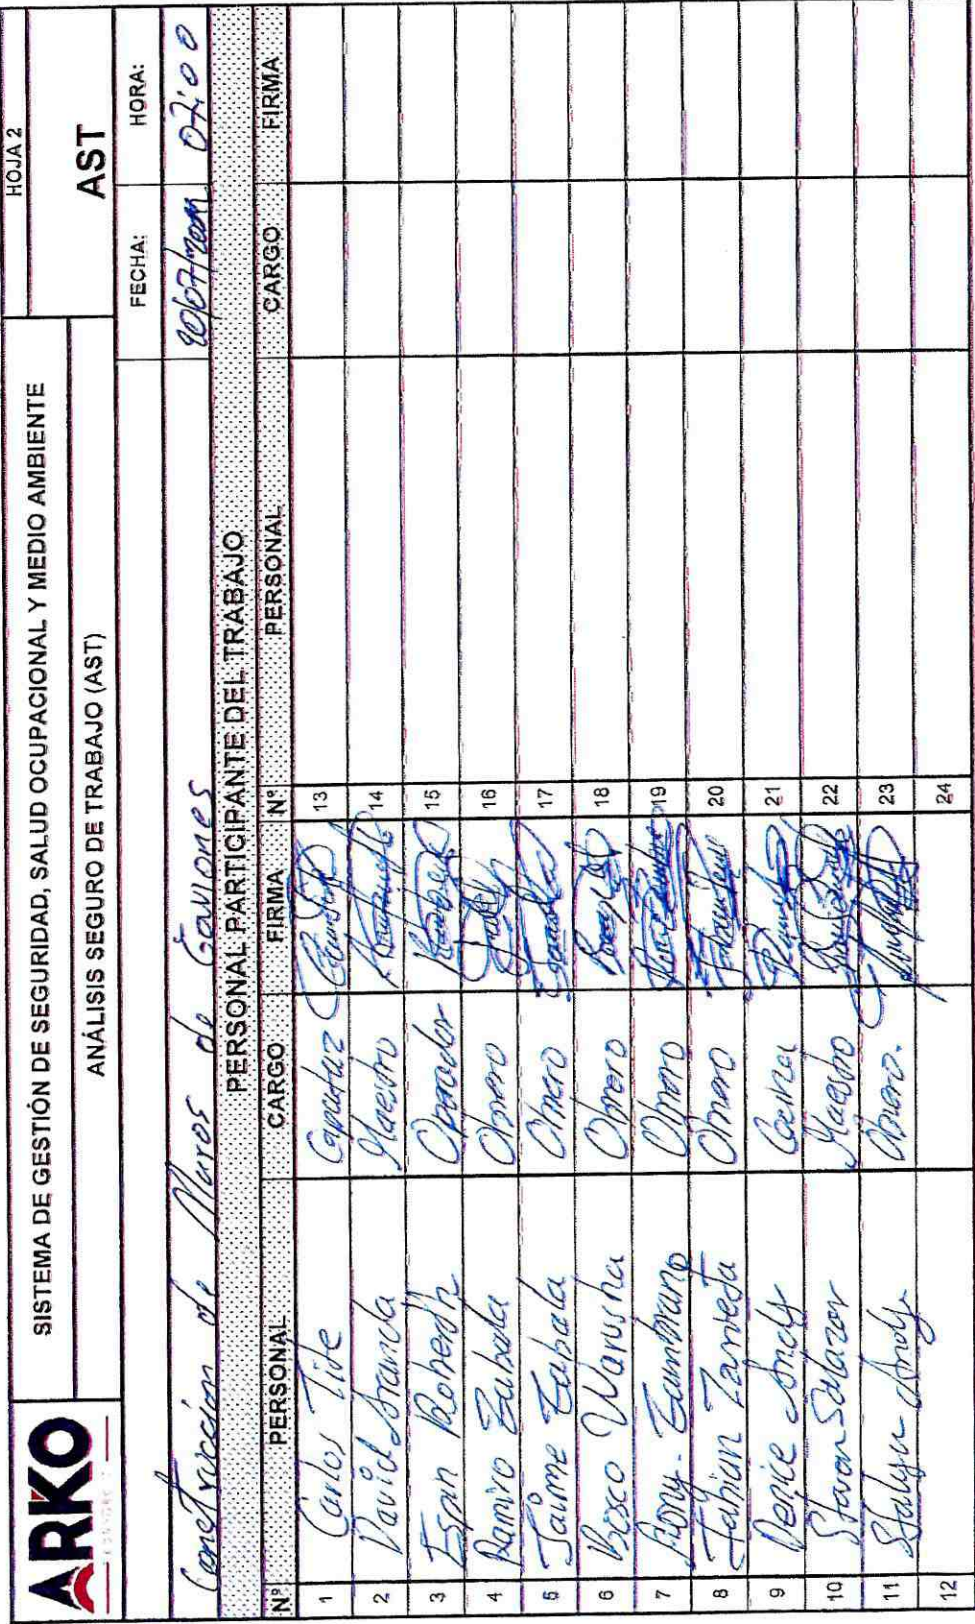 ARKO
SISTEMA DE GESTIÓN DE SEGURIDAD, SALUD OCUPACIONAL Y MEDIO AMBIENTE
HOJA 2
ANÁLISIS SEGURO DE TRABAJO (AST)
AST
FECHA: HORA:
Construcción de Muros de Gaviones 07:00
PERSONAL PARTICIPANTE DEL TRABAJO
Nº PERSONAL CARGO FIRMA Nº PERSONAL CARGO FIRMA
1 Carlos Tite Capataz 13
2 David Aranda Maestro 14
3 Espin Roberth Operador 15
4 Ramiro Zabala Obrero 16
5 Jaime Zabala Obrero 17
6 Obrero 18
7 Zambrano Obrero 19
8 Fabian Obrero 20
9 Andy Cocina 21
10 Salazar Maestro 22
11 Stalyn Andy Obrero. 23
12 24